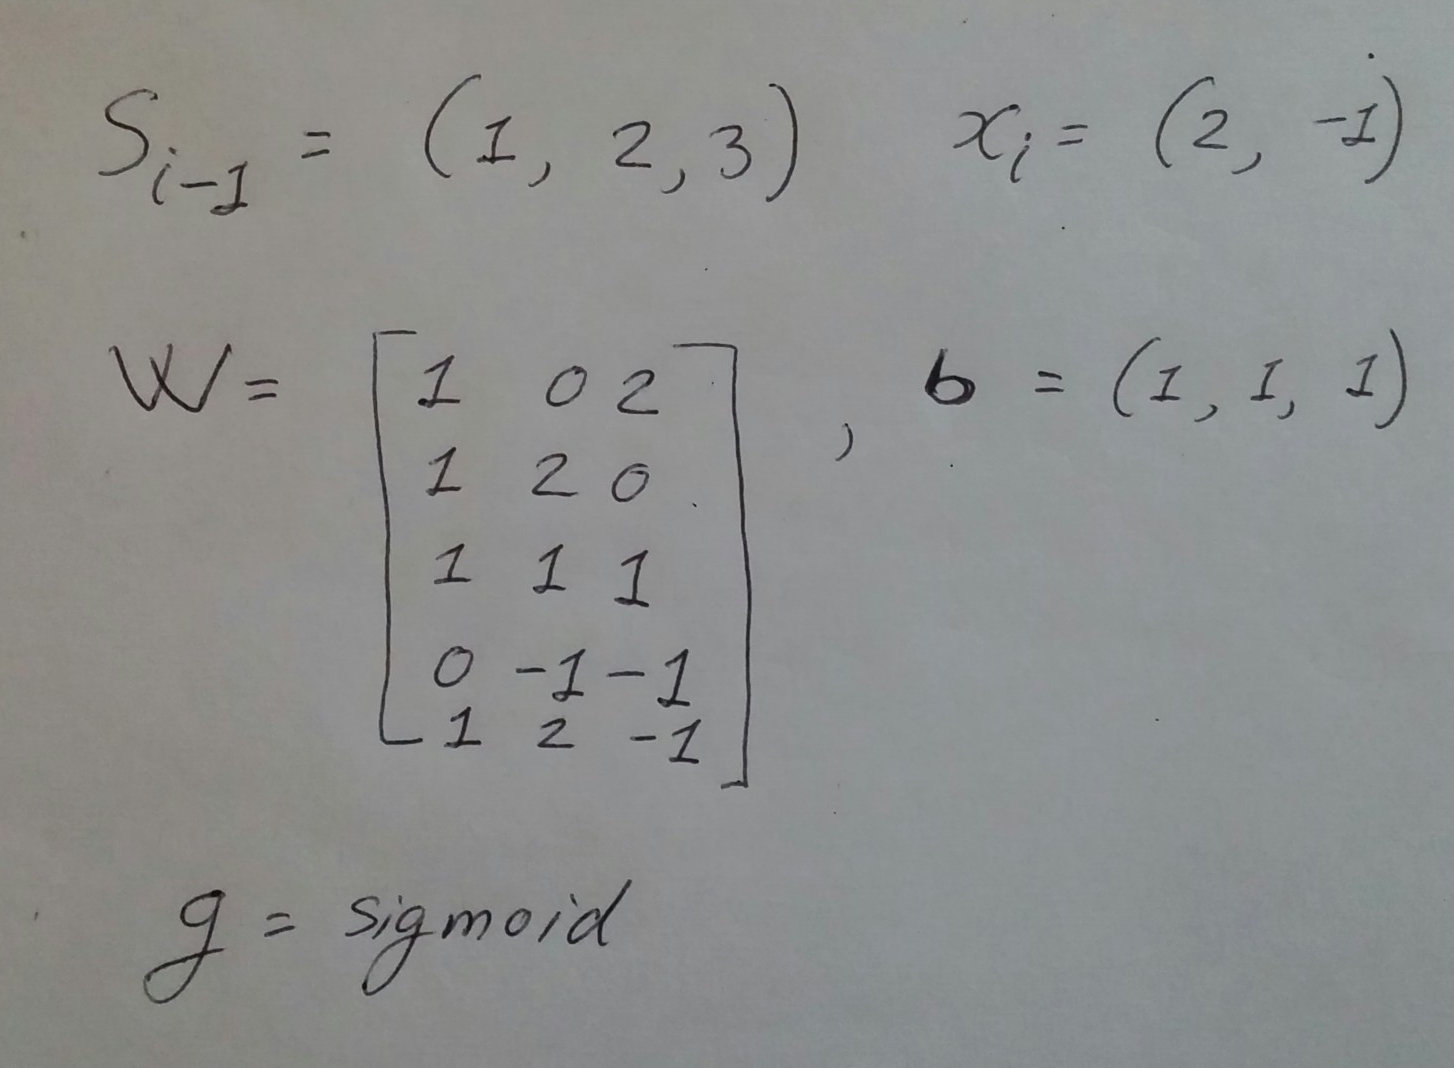 S_{i-1} = (1, 2, 3) x_i = (2, -1)
W = [1 0 2
1 2 0
1 1 1
0 -1 -1
1 2 -1] , b = (1, 1, 1)
g = sigmoid